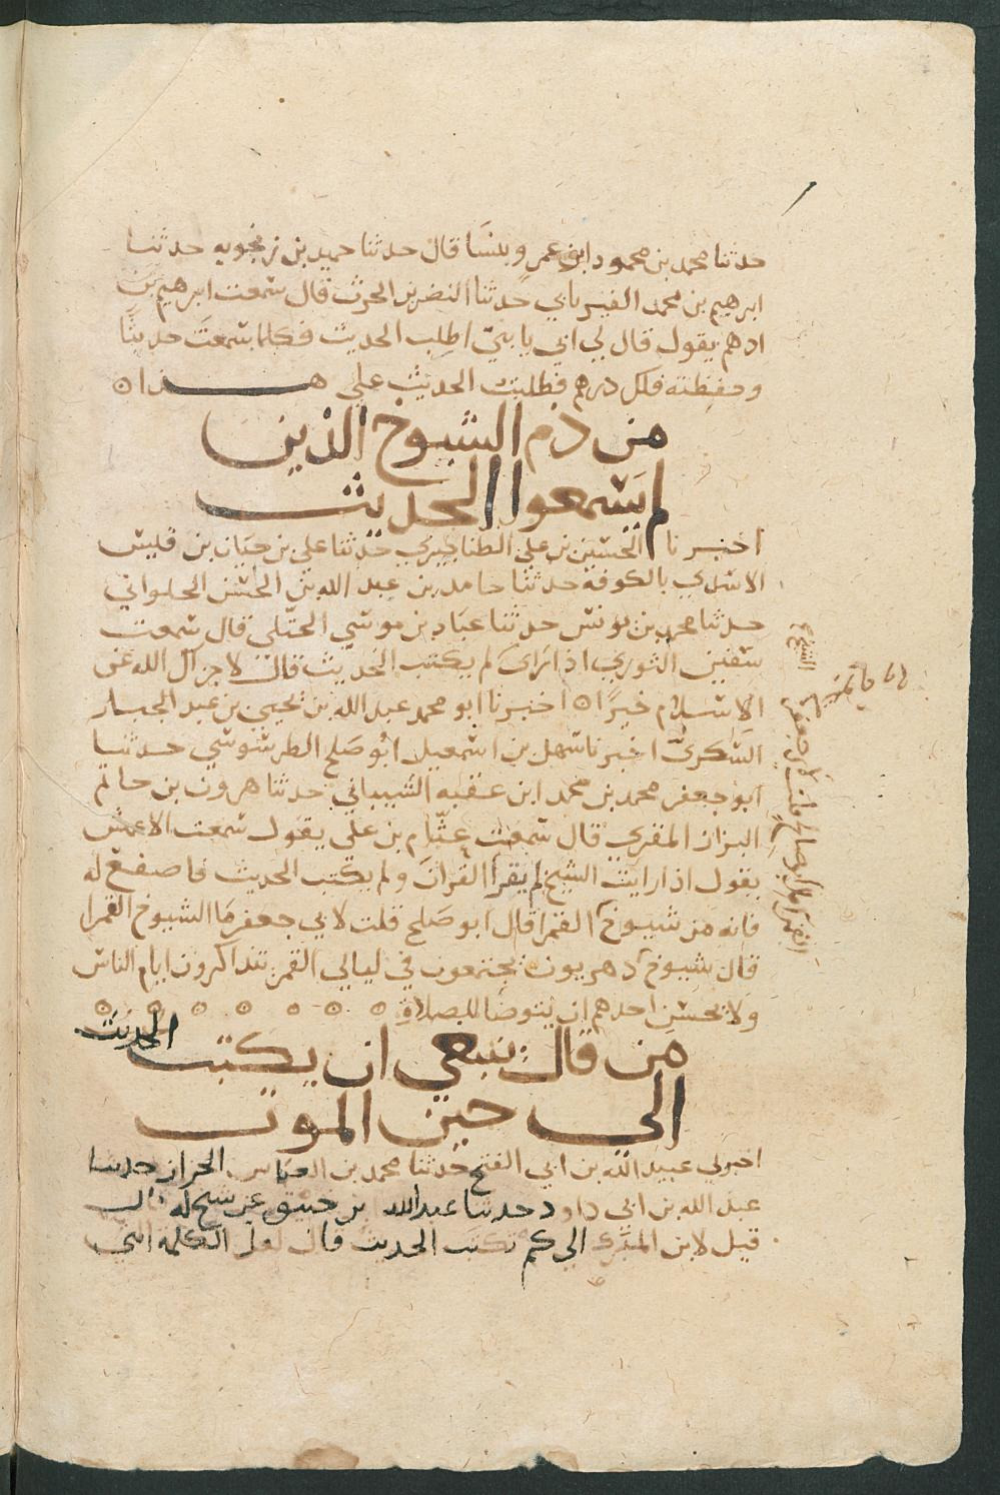 حدثنا محمد بن محمود ابو عمرو بنسا قال حدثنا حميد بن زنجويه حدثنا
ابرهيم بن محمد الفيريابي حدثنا النضر بن الحرث قال سمعت ابرهيم بن
ادهم يقول قال لي ابي يا بني اطلب الحديث فكلما سمعت حديثا
وحفظته فلك درهم فطلبت الحديث علي هذا ه
من ذم الشيوخ الذين
لم يسمعوا الحديث
اخبرنا الحسين بن علي الطناجيري حدثنا علي بن حيان بن قليس
الاسدي بالكوفة حدثنا حامد بن عبد الله بن الحسن الحلواني
حدثنا محمد بن يونس حدثنا عباد بن موسي الختلي قال سمعت
سفين الثوري اذا راى لم يكتب الحديث قال لا جزاك الله عن
الاسلام خيرا ه اخبرنا ابو محمد عبد الله بن يحيى بن عبد الجبار
السكري اخبرنا سهل بن اسمعيل ابو صلح الطرسوسي حدثنا
ابو جعفر محمد بن محمد ابن عقبه الشيباني حدثنا هرون بن حاتم
البزاز المقري قال سمعت عثام بن علي يقول سمعت الاعمش
يقول اذا رايت الشيخ لم يقرا القران ولم يكتب الحديث فاصفع له
فانه من شيوخ القمرا قال ابو صلح قلت لابي جعفر ما الشيوخ القمرا
قال شيوخ دهريون يجتمعون في ليالي القمر تتذاكرون ايام الناس
ولا يحسن احدهم ان يتوضا للصلاة ه ه ه ه ه ه ه
من قال ينبغي ان يكتب الحديث
الى حين الموت
اخبرني عبيد الله بن ابي الفتح حدثنا محمد بن العباس الخزاز حدثنا
عبد الله بن ابي داود حدثنا عبد الله بن خبيق عن شيخ له قال
قيل لابن المبرك الى كم تكتب الحديث قال لعل الكلمة التي